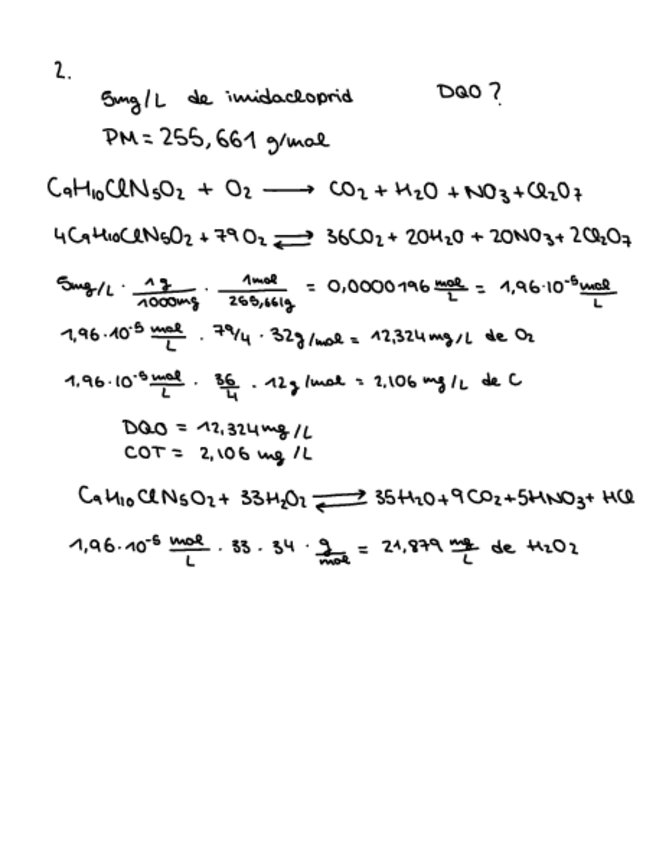 2.
5mg/L de imidacloprid DQO ?
PM = 255,661 g/mol
C9H10ClN5O2 + O2 ⟶ CO2 + H2O + NO3 + Cl2O7
4C9H10ClN5O2 + 79O2 ⇄ 36CO2 + 20H2O + 20NO3 + 2Cl2O7
5mg/L · 1g/1000mg · 1mol/255,661g = 0,0000196 mol/L = 1,96·10⁻⁵ mol/L
1,96·10⁻⁵ mol/L · 79/4 · 32g/mol = 12,324 mg/L de O2
1,96·10⁻⁵ mol/L · 36/4 · 12g/mol = 2,106 mg/L de C
DQO = 12,324mg/L
COT = 2,106 mg/L
C9H10ClN5O2 + 33H2O2 ⇄ 35H2O + 9CO2 + 5HNO3 + HCl
1,96·10⁻⁵ mol/L · 33 · 34 · g/mol = 21,879 mg/L de H2O2